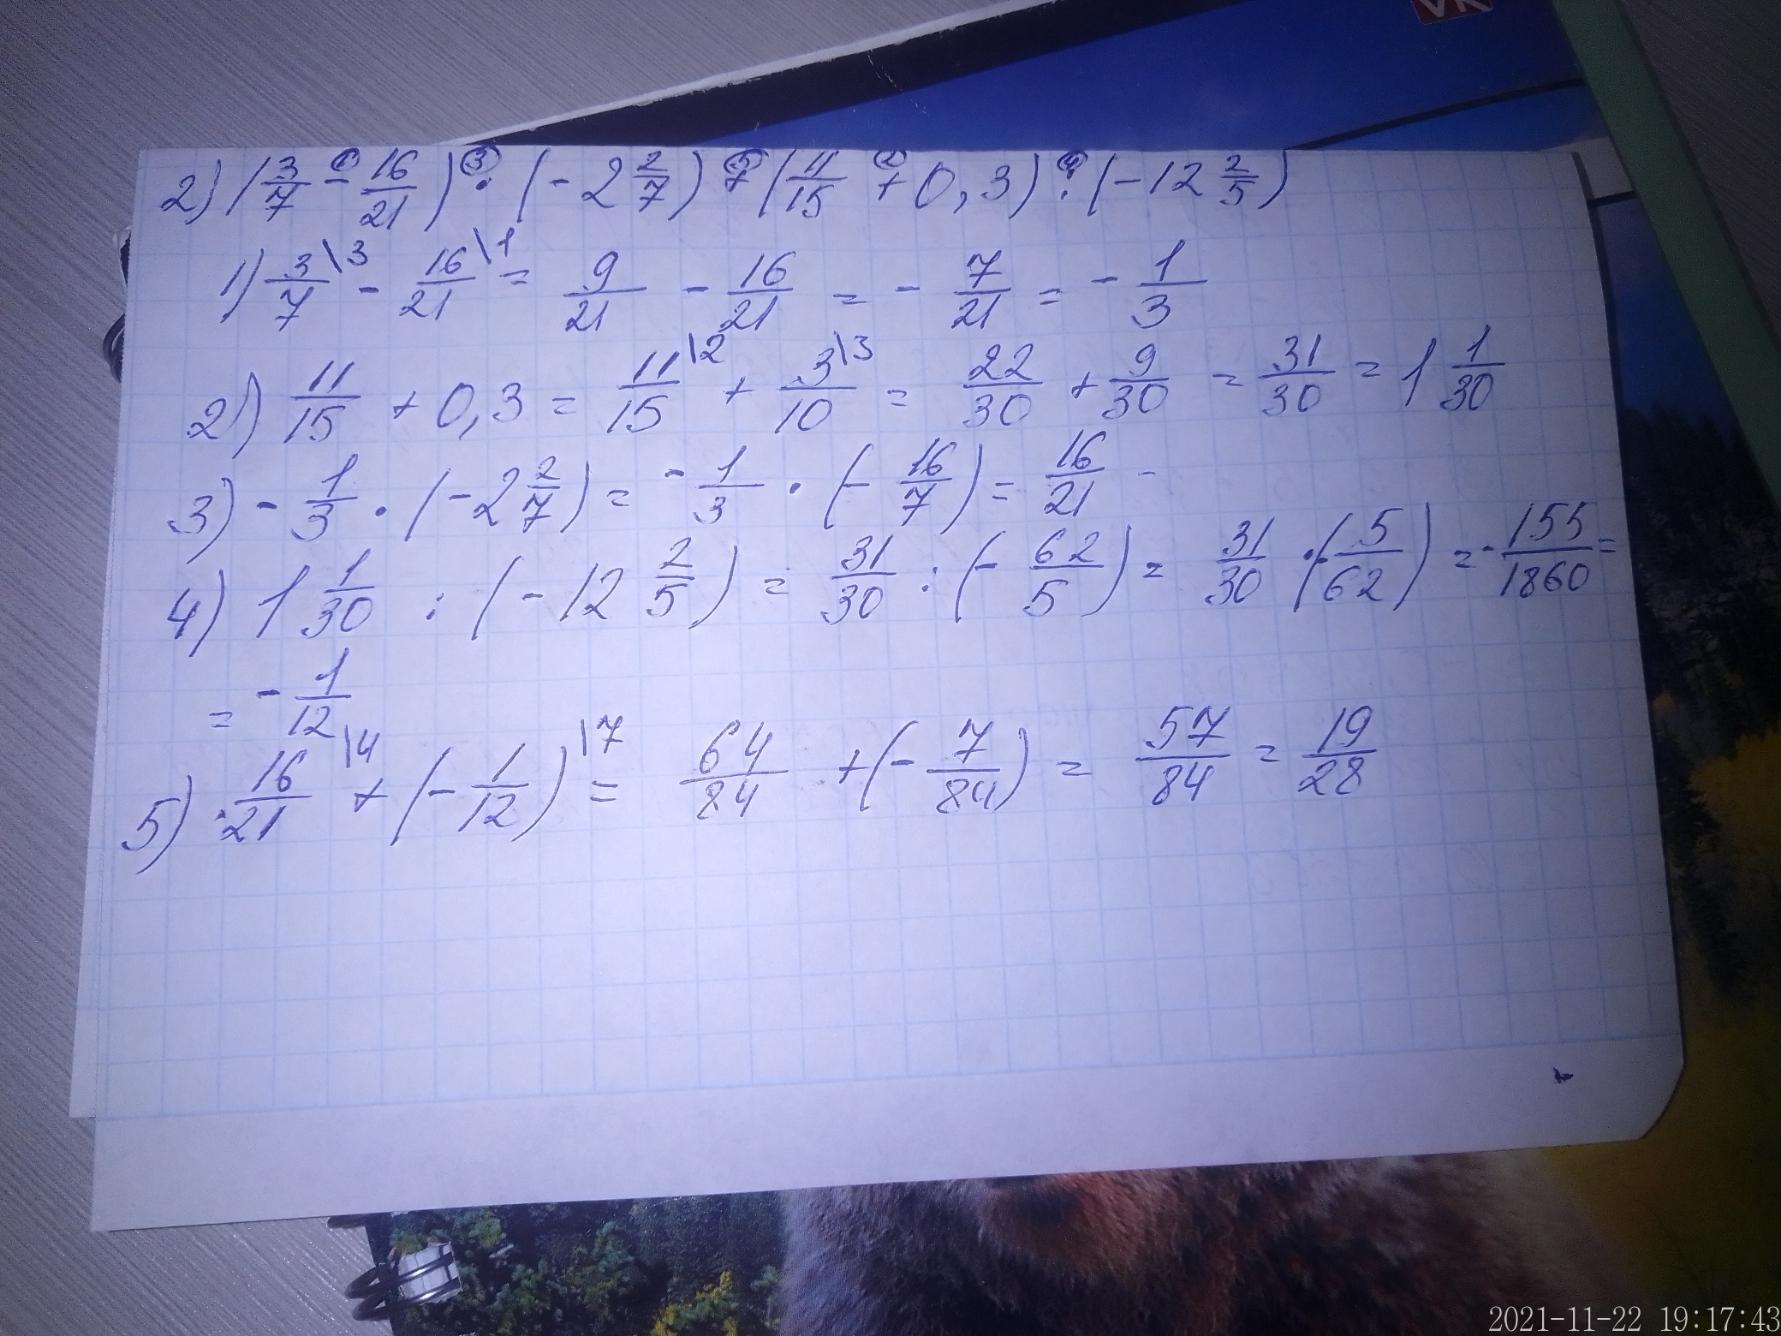 VK
2) (3/7 - 16/21) · (-2 2/7) + (11/15 + 0,3) : (-12 2/5)
1) 3/7 \3 - 16/21 \1 = 9/21 - 16/21 = - 7/21 = - 1/3
2) 11/15 + 0,3 = 11/15 \2 + 3/10 \3 = 22/30 + 9/30 = 31/30 = 1 1/30
3) - 1/3 · (-2 2/7) = - 1/3 · (- 16/7) = 16/21 -
4) 1 1/30 : (-12 2/5) = 31/30 : (- 62/5) = 31/30 · (- 5/62) = - 155/1860 =
= - 1/12
5) 16/21 \4 + (- 1/12) \7 = 64/84 + (- 7/84) = 57/84 = 19/28
2021-11-22 19:17:43